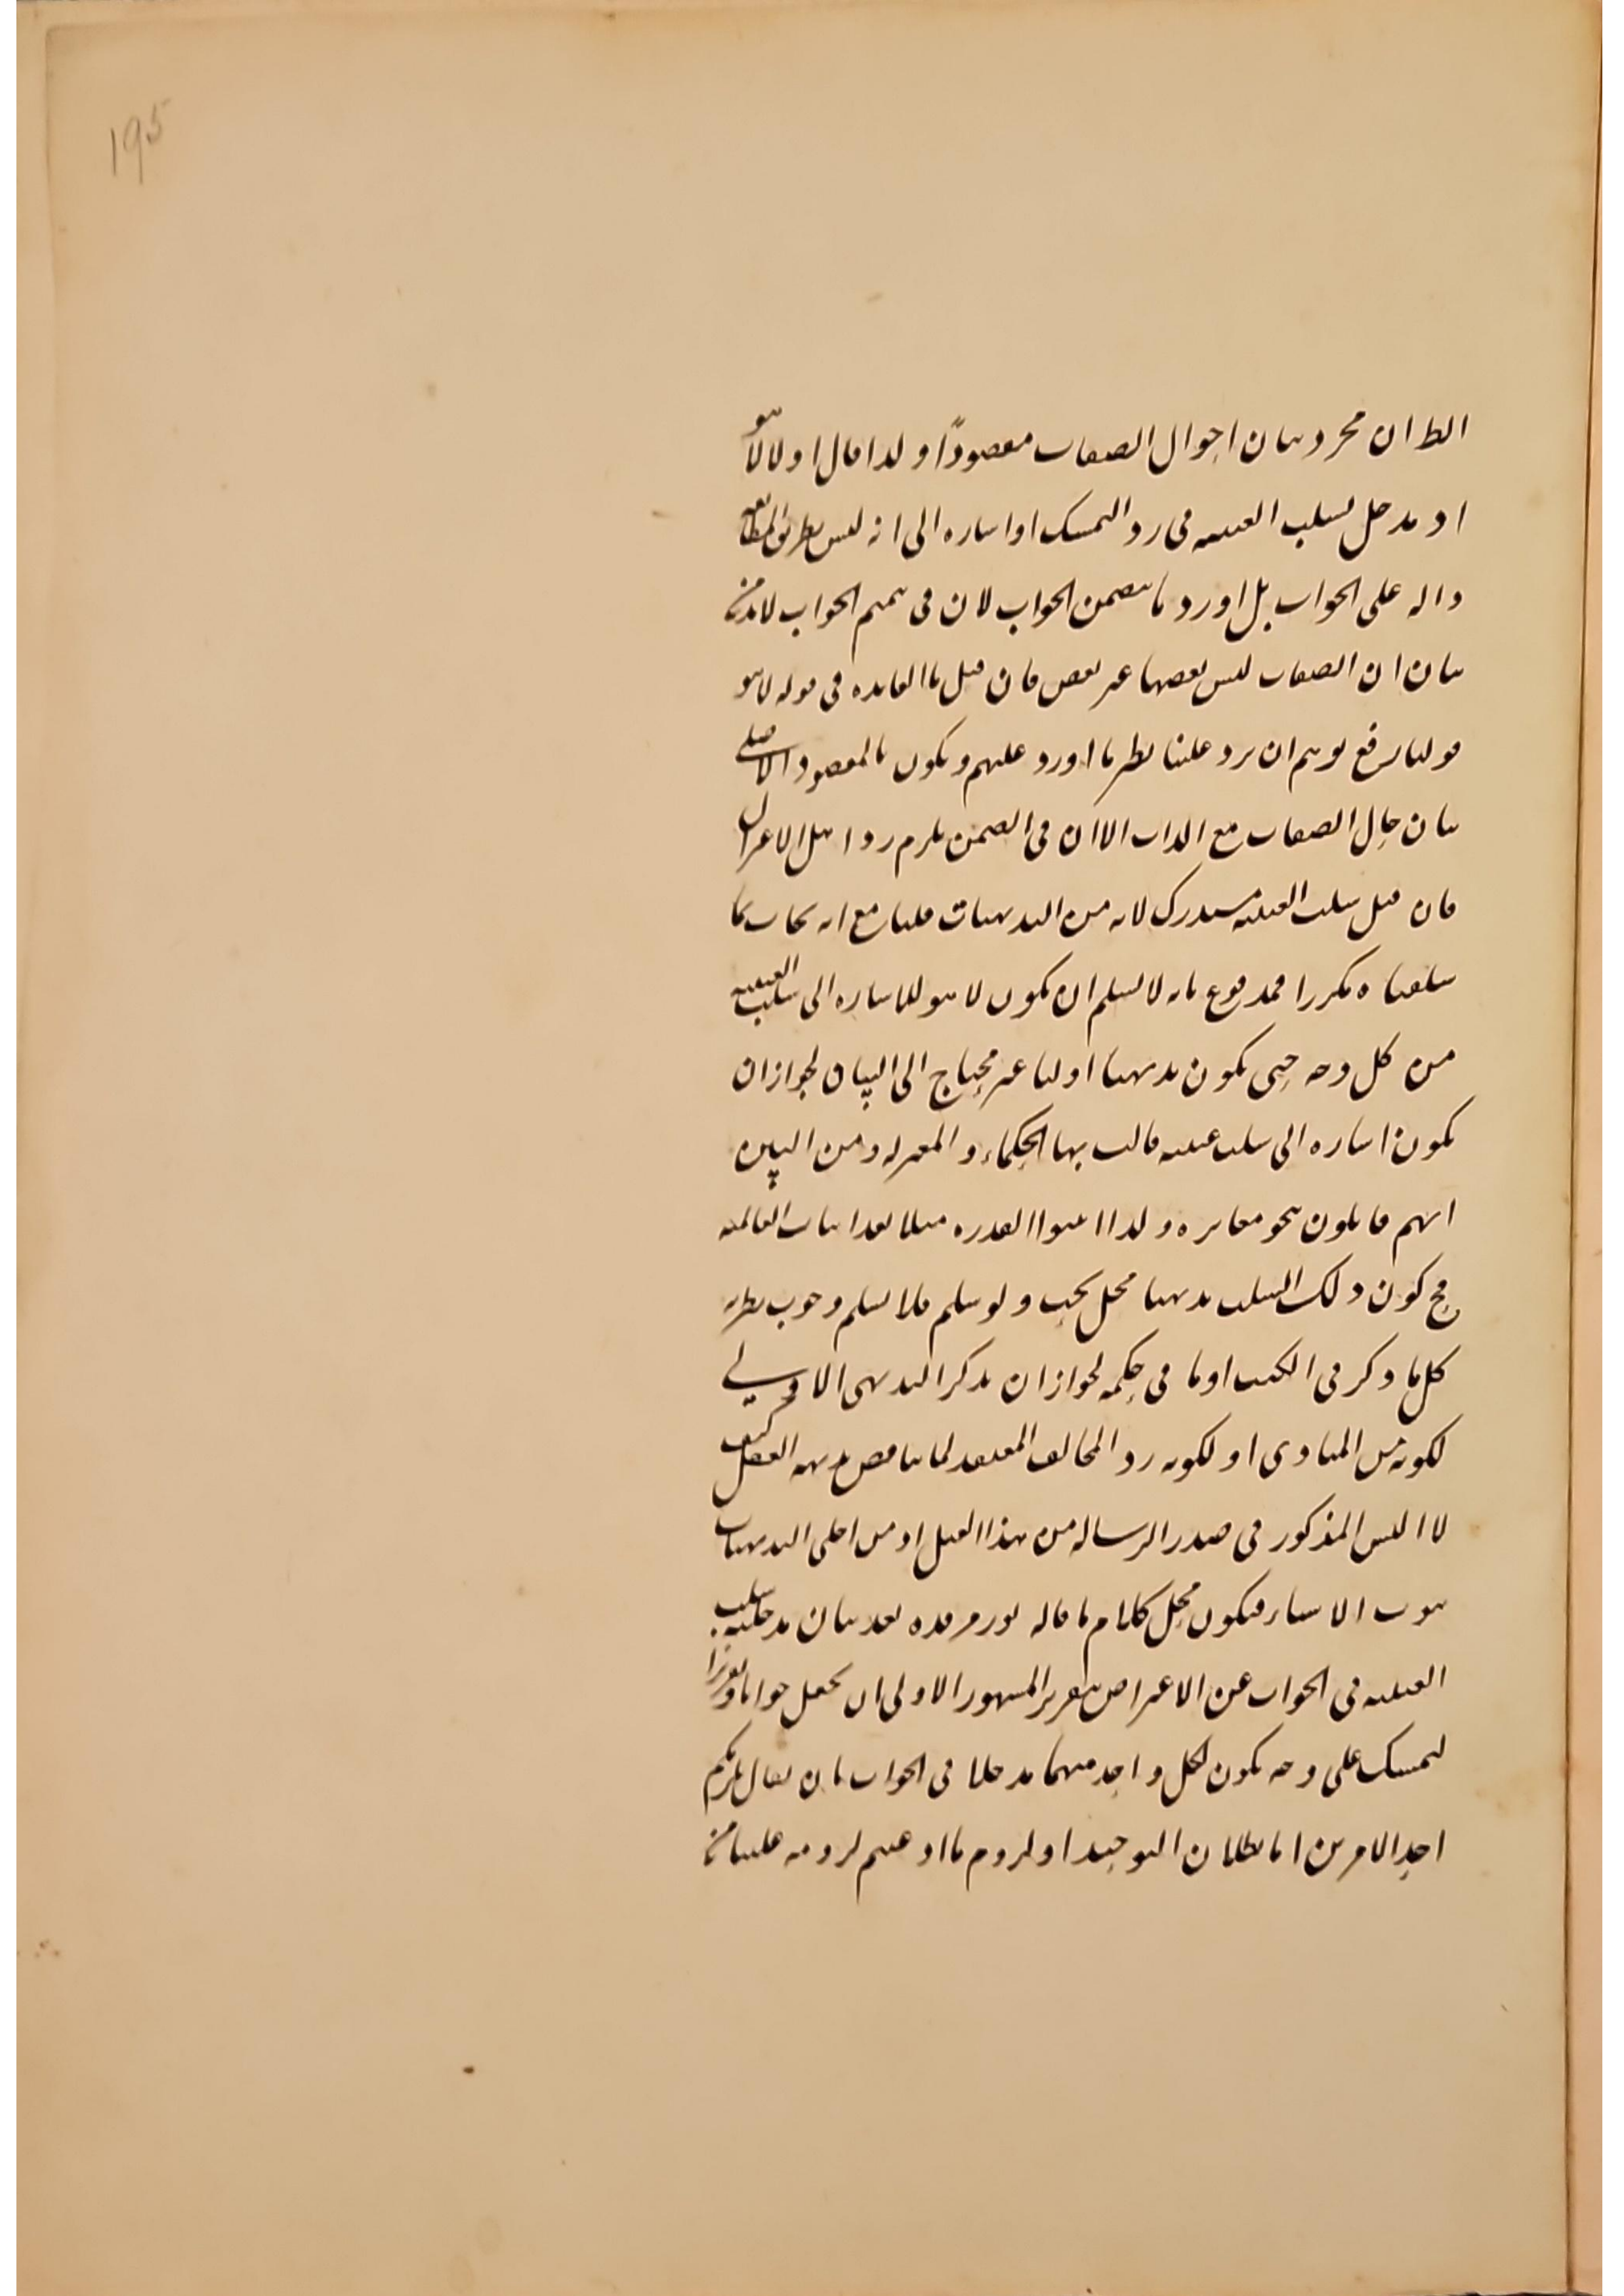 195
الظ ان مجرد بيان احوال الصفات مقصودًا ولذا قال اولا لا هو
اذ مدخل لسلب العينية فى رد التمسك او اشاره الى انه ليس بطريق المطابقه
داله على الجواب بل اورد ما يتضمن الجواب لان فى تتميم الجواب لابد من
بيان ان الصفات ليس بعضها غير بعض فان قيل ما الفايده فى قوله لا هو
قولنا يرفع توهم ان يرد علينا نظير ما اورد عليهم ويكون المقصود الاصلى
بيان حال الصفات مع الذات الا ان فى الضمن يلزم رد اهل الاعتزال
فان قيل سلب العينيه مستدرك لانه من البديهيات قلنا مع انه يجاب بما
سلفناه مكررا فمدفوع بانه لا نسلم ان يكون لا هو للاشاره الى سلب العينيه
من كل وجه حتى يكون بديهيا اوليا غير محتاج الى البيان لجواز ان
يكون اشاره الى سلب عينيه قالت بها الحكماء والمعتزله ومن البين
انهم قايلون بنحو مغايره ولذا اثبتوا القدره مثلا بعد اثبات العالميه
فح كون ذلك السلب بديهيا محل بحث ولو سلم فلا نسلم وجوب نظريه
كل ما ذكر فى الكتب او ما فى حكمه لجواز ان يذكر البديهى الاولى
لكونه من المبادى او لكونه رد المخالف المعتقد لما يناقض بديهه العقل كيف
لا اليس المذكور فى صدر الرساله من هذا القبيل اذ من اجلى البديهيات
ثبوت الاشياء فيكون محل كلام ما قاله نور مرقده بعد بيان مدخليه سلب
العينيه فى الجواب عن الاعتراض بتقرير المشهور الاولى ان يجعل جوابا
لتمسك على وجه يكون لكل واحد منهما مدخلا فى الجواب بان يقال يلزمكم
احد الامرين اما بطلان التوحيد او لزوم ما ادعيتم لزومه علينا من